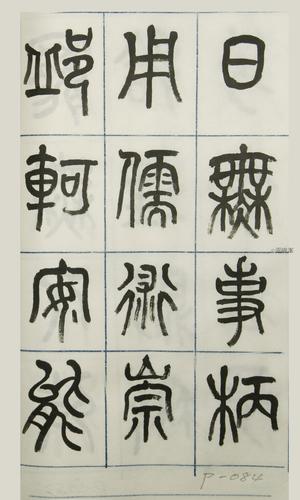 日無事柄
用儒術崇
邱軻安能
P-084